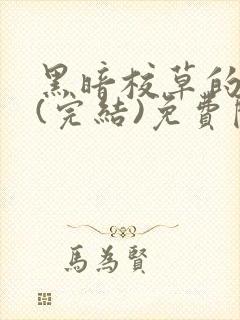 黑暗校草的
(完結)免費
馬為賢